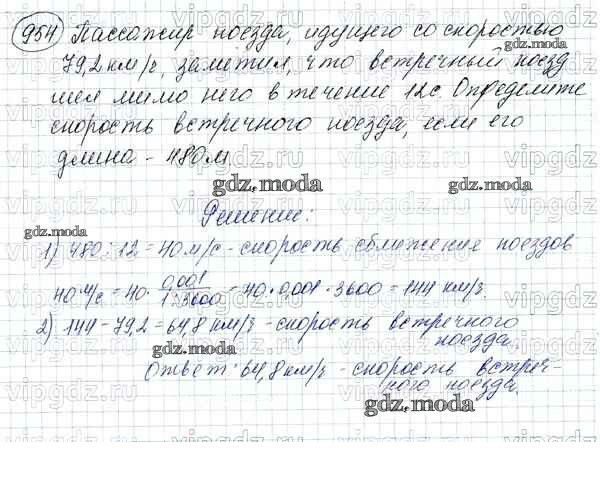 954 Пассажир поезда, идущего со скоростью
79,2 км/г, заметил, что встречный поезд
шел мимо него в течение 12с. Определите
скорость встречного поезда, если его
длина - 480м.
gdz.moda gdz.moda
Решение:
gdz.moda
1) 480 : 12 = 40 м/с - скорость сближения поездов
gdz.moda
40 м/с = 40 · 0,001 / 1:3600 = 40 · 0,001 · 3600 = 144 км/г.
2) 144 - 79,2 = 64,8 км/г - скорость встречного
поезда.
gdz.moda
Ответ: 64,8 км/г - скорость встреч-
ного поезда.
gdz.moda
gdz.moda
vipgdz.ru